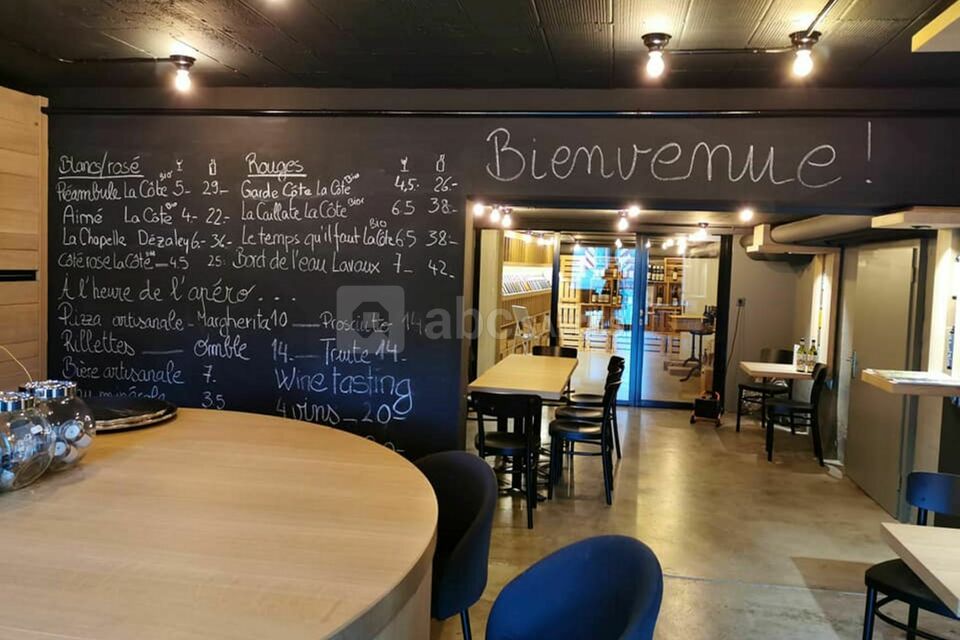 Bienvenue!
Blancs/rosé
Préambule La Côte Bio 5- 29.-
Aimé La Côte Bio 4- 22.-
La Chapelle Dézaley 6- 36.-
Côté rose La Côte 4.5 25.-
Rouges
Garde Côte La Côte Bio 4.5 26.-
La Caillate La Côte Bio 6.5 38.-
Le temps qu'il faut La Côte Bio 6.5 38.-
Bord de l'eau Lavaux 7.- 42.-
À l'heure de l'apéro....
Pizza artisanale - Margherita 10 — Prosciuto 14
Rillettes — Omble 14. — Truite 14.
Bière artisanale 7.
minérale 3.5
Wine tasting
4 vins - 20.-
abcs